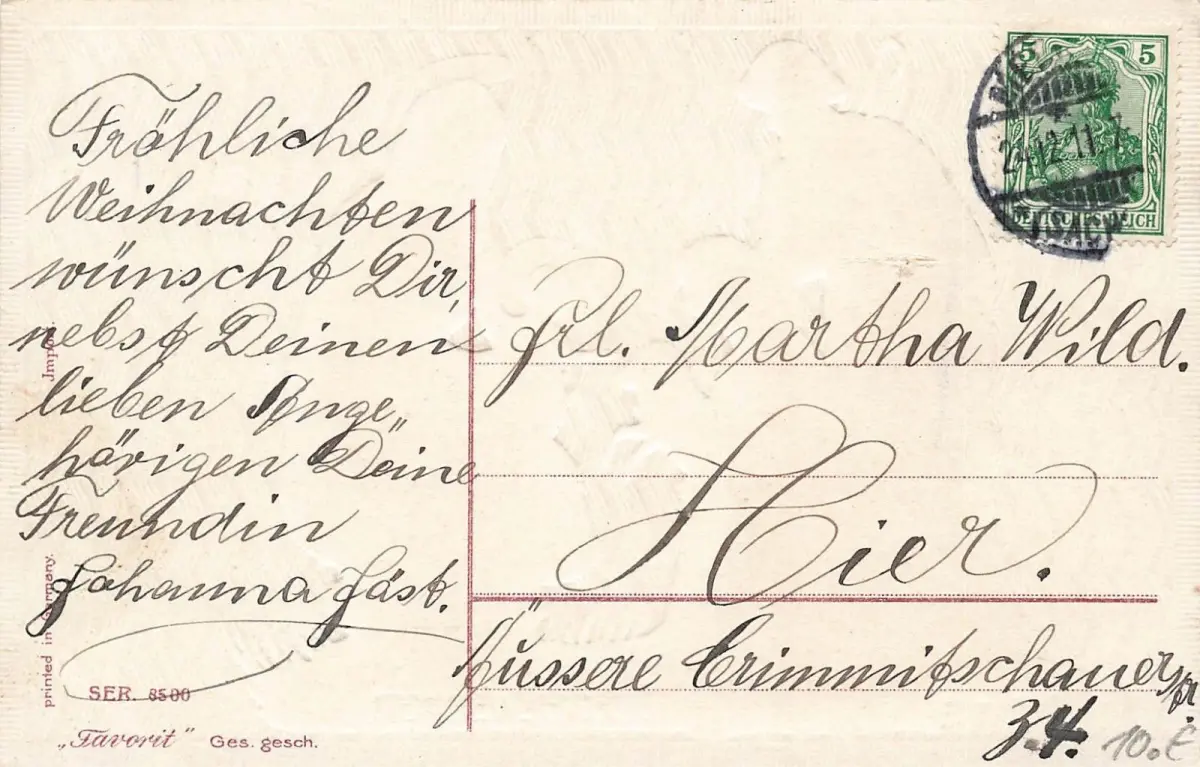 Fröhliche
Weihnachten
wünscht Dir,
nebst Deinen
lieben Ange„
hörigen Deine
Freundin
Johanna Jäst.
5 5
24.12.11.7
DEUTSCHES REICH
Frl. Martha Wild.
Hier.
Äussere Crimmitschauer
3.4.
10.€
printed in Germany.
SER. 8500
„Favorit“ Ges. gesch.